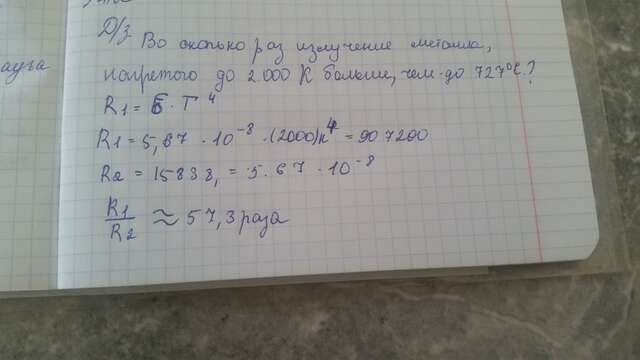 ауга
Д/з. Во сколько раз излучение металла,
нагретого до 2000 К больше, чем до 727°С?
R1 = б · T⁴
R1 = 5,67 · 10⁻⁸ · (2000)К⁴ = 907200
R2 = 15838, = 5.67 · 10⁻⁸
R1/R2 ≈ 57,3 раза